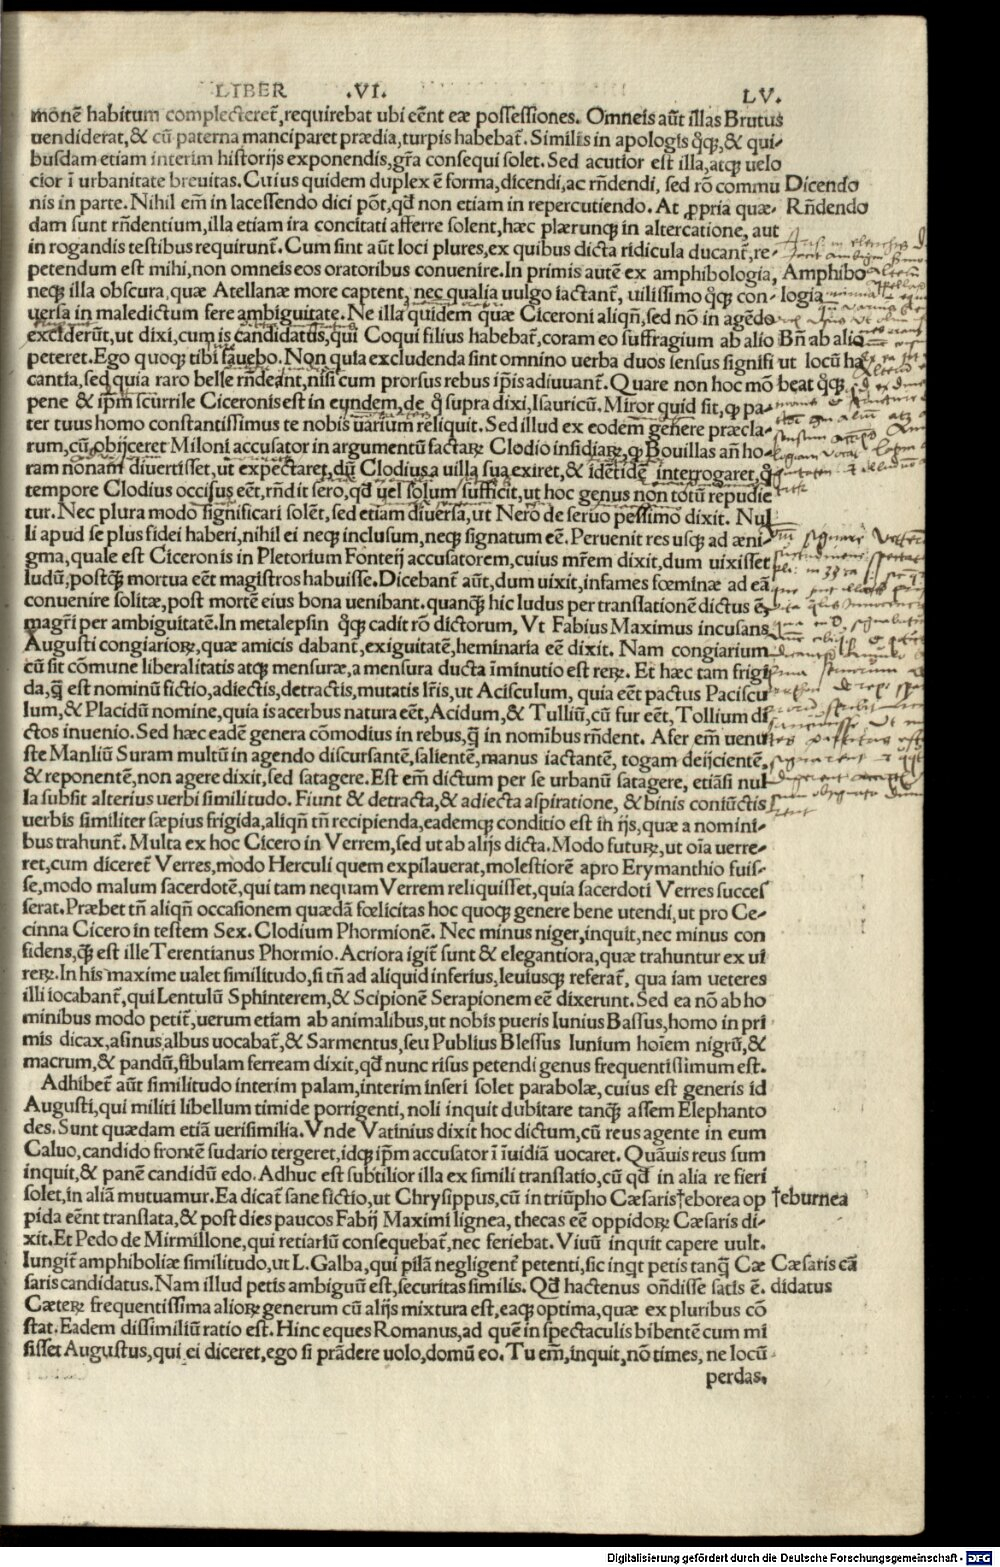 LIBER .VI. LV.
monē habitum complecteret̄,requirebat ubi eēnt eæ possessiones. Omneis aūt illas Brutus
uendiderat,& cū paterna manciparet prædia,turpis habebat̄. Similis in apologis q̄q̨,& qui-
busdam etiam interim historijs exponendis,gr̄a consequi solet. Sed acutior est illa,atq̨ uelo
cior ī urbanitate breuitas. Cuius quidem duplex ē forma,dicendi,ac rn̄dendi, sed rō commu
nis in parte. Nihil em̄ in lacessendo dici pōt,qd̄ non etiam in repercutiendo. At ꝓpria quæ-
dam sunt rn̄dentium,illa etiam ira concitati afferre solent,hæc plærunq̨ in altercatione, aut
in rogandis testibus requirunt̄. Cum sint aūt loci plures,ex quibus dicta ridicula ducant̄,re-
petendum est mihi,non omneis eos oratoribus conuenire. In primis autē ex amphibologia,
neq̨ illa obscura,quæ Atellanæ more captent, nec qualia uulgo iactant̄, uilissimo q̄q̨ con-
uersa in maledictum fere ambiguitate. Ne illa quidem quæ Ciceroni aliqn̄,sed nō in agēdo
exciderūt,ut dixi,cum is candidatus,qui Coqui filius habebat̄,coram eo suffragium ab alio
peteret. Ego quoq̨ tibi fauebo. Non quia excludenda sint omnino uerba duos sensus signifi
cantia,sed quia raro belle rn̄deānt,nisi cum prorsus rebus ip̄is adiuuant̄. Quare non hoc mō
pene & ip̄m scurrile Ciceronis est in eundem,de q̄ supra dixi,Isauricū. Miror quid sit,q̨ pa-
ter tuus homo constantissimus te nobis uarium reliquit. Sed illud ex eodem genere præcla-
rum,cū obijceret Miloni accusator in argumentū factaꝝ Clodio insidiaꝝ,q̨ Bouillas an̄ ho-
ram nonam diuertisset,ut expectaret,dū Clodius a uilla sua exiret,& idētidē interrogaret,q̄
tempore Clodius occisus eēt,rn̄dit sero,qd̄ uel solum sufficit,ut hoc genus non totū repudie
tur. Nec plura modo significari solēt,sed etiam diuersa,ut Nero de seruo pessimo dixit. Nul
li apud se plus fidei haberi,nihil ei neq̨ inclusum,neq̨ signatum eē. Peruenit res usq̨ ad æni-
gma,quale est Ciceronis in Pletorium Fonteij accusatorem,cuius mr̄em dixit,dum uixisset
ludū,postq̄ mortua eēt magistros habuisse. Dicebant̄ aūt,dum uixit,infames fœminæ ad eā
conuenire solitæ,post mortē eius bona uenibant. quanq̄ hic ludus per translationē dictus ē,
magr̄i per ambiguitatē. In metalepsin q̄q̨ cadit rō dictorum, Vt Fabius Maximus incusans
Augusti congiarioꝝ,quæ amicis dabant̄,exiguitatē,heminaria eē dixit. Nam congiarium
cū sit cōmune liberalitatis atq̨ mensuræ,a mensura ducta īminutio est reꝝ. Et hæc tam frigi
da,q̄ est nominū fictio,adiectis,detractis,mutatis lr̄is,ut Acisculum, quia eēt pactus Paciscu
lum,& Placidū nomine,quia is acerbus natura eēt,Acidum,& Tulliū,cū fur eēt,Tollium di
ctos inuenio. Sed hæc eadē genera cōmodius in rebus,q̄ in nomībus rn̄dent. Afer em̄ uenu
ste Manliū Suram multū in agendo discursantē,salientē,manus iactantē, togam deijcientē,
& reponentē,non agere dixit,sed satagere. Est em̄ dictum per se urbanū satagere, etiāsi nul
la subsit alterius uerbi similitudo. Fiunt & detracta,& adiecta aspiratione, & binis coniūctis
uerbis similiter sæpius frigida,aliqn̄ tn̄ recipienda,eademq̨ conditio est in ijs,quæ a nomini-
bus trahunt̄. Multa ex hoc Cicero in Verrem,sed ut ab alijs dicta. Modo futuꝝ,ut oīa uerre-
ret,cum diceret̄ Verres,modo Herculi quem expilauerat,molestiorē apro Erymanthio fuis-
se,modo malum sacerdotē,qui tam nequam Verrem reliquisset,quia sacerdoti Verres succes
serat. Præbet tn̄ aliqn̄ occasionem quædā fœlicitas hoc quoq̨ genere bene utendi,ut pro Ce-
cinna Cicero in testem Sex. Clodium Phormionē. Nec minus niger,inquit,nec minus con
fidens,q̄ est ille Terentianus Phormio. Acriora igit̄ sunt & elegantiora,quæ trahuntur ex ui
reꝝ. In his maxime ualet similitudo,si tn̄ ad aliquid inferius,leuiusq̨ referat̄, qua iam ueteres
illi iocabant̄,qui Lentulū Sphinterem,& Scipionē Serapionem eē dixerunt. Sed ea nō ab ho
minibus modo petit̄,uerum etiam ab animalibus,ut nobis pueris Iunius Bassus,homo in pri
mis dicax,asinus albus uocabat̄,& Sarmentus,seu Publius Blessus Iunium hoīem nigrū,&
macrum,& pandū,fibulam ferream dixit,qd̄ nunc risus petendi genus frequentissimum est.
Adhibet̄ aūt similitudo interim palam,interim inseri solet parabolæ, cuius est generis id
Augusti,qui militi libellum timide porrigenti, noli inquit dubitare tanq̄ assem Elephanto
des. Sunt quædam etiā uerisimilia. Vnde Vatinius dixit hoc dictum,cū reus agente in eum
Caluo,candido frontē sudario tergeret,idq̨ ip̄m accusator ī īuidiā uocaret. Quāuis reus sum
inquit,& panē candidū edo. Adhuc est subtilior illa ex simili translatio,cū qd̄ in alia re fieri
solet,in aliā mutuamur. Ea dicat̄ sane fictio,ut Chrysippus,cū in triūpho Cæsaris†eborea op
pida eēnt translata,& post dies paucos Fabij Maximi lignea, thecas eē oppidoꝝ Cæsaris di-
xit. Et Pedo de Mirmillone,qui retiariū consequebat̄,nec feriebat. Viuū inquit capere uult.
Iungit̄ amphiboliæ similitudo,ut L. Galba,qui pilā negligent̄ petenti,sic inqt petis tanq̄ Cæ
saris candidatus. Nam illud petis ambiguū est,securitas similis. Qd̄ hactenus on̄disse satis ē.
Cæteꝝ frequentissima alioꝝ generum cū alijs mixtura est,eaq̨ optima,quæ ex pluribus cō
stat. Eadem dissimiliū ratio est. Hinc eques Romanus,ad quē in spectaculis bibentē cum mi
sisset Augustus,qui ei diceret,ego si prādere uolo,domū eo. Tu em̄,inquit,nō times, ne locū
perdas.
Dicendo
Rn̄dendo
Amphibo
logia
Bn̄ ab alio
ut locū ha
beat q̄q̨
†eburnea
Cæsaris cā
didatus
Digitalisierung gefördert durch die Deutsche Forschungsgemeinschaft - DFG